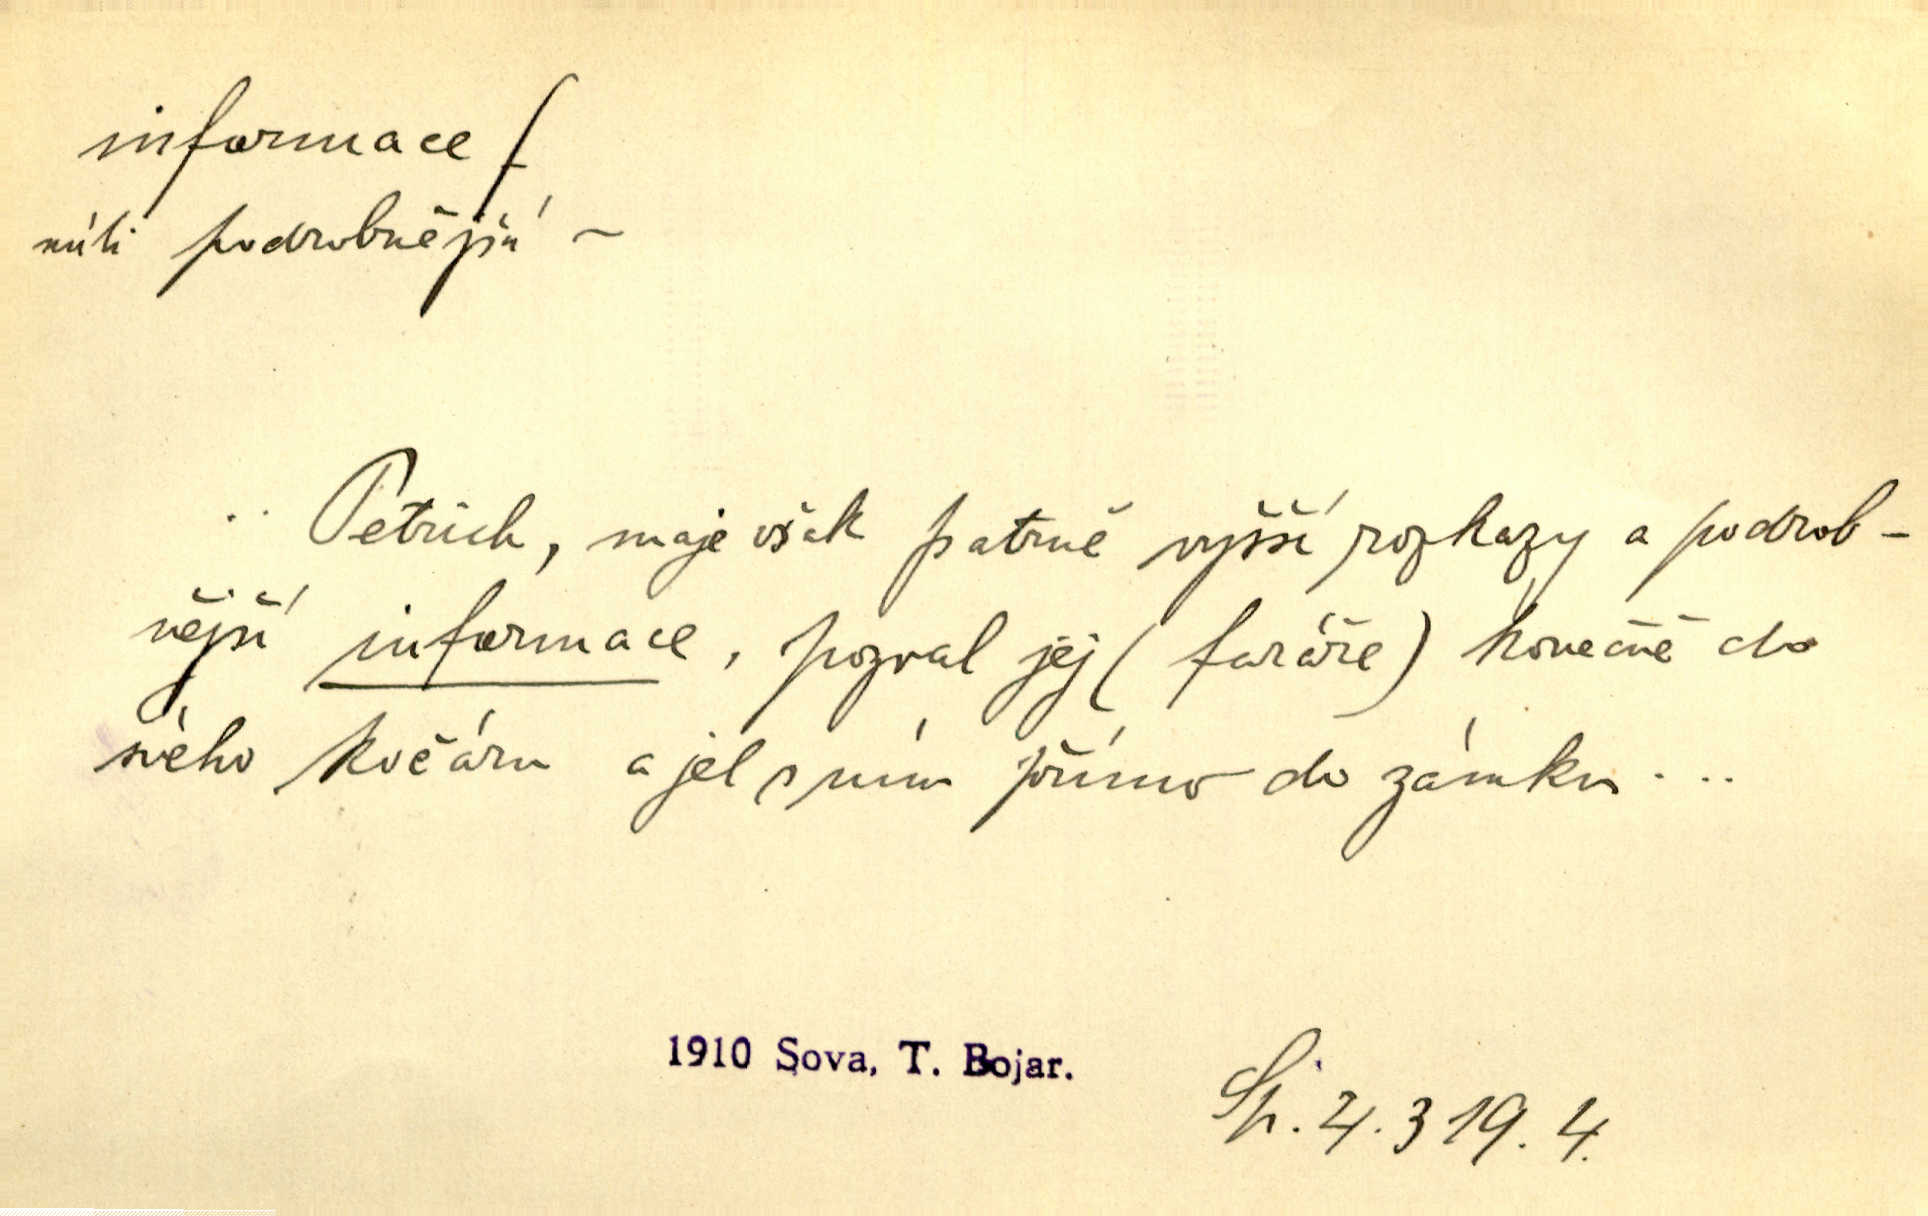 informace f
míti podrobnější ~
.. Petrich, maje však patrně vyšší rozkazy a podrob-
nější informace, pozval jej (faráře) konečně do
svého kočáru a jel s ním přímo do zámku ...
1910 Sova, T. Bojar.
Sp. 4. 319. 4.